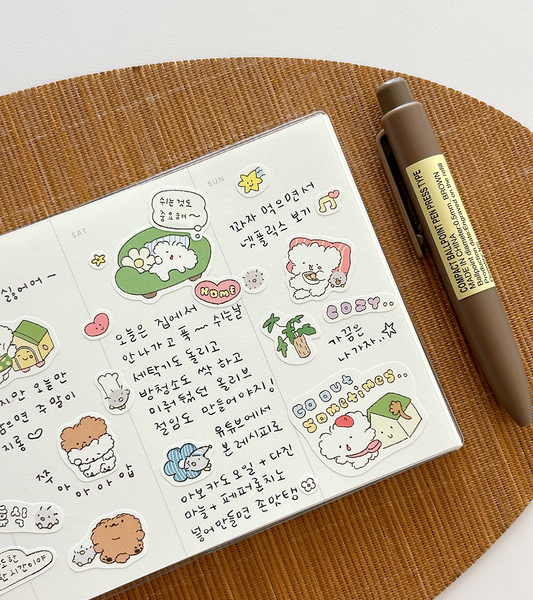 싶어여~
지만 오늘만
남으면 주말이
지롱♡
쥬
아 아 아 압
휴식
SAT
쉬는것도
중요해~
HOME
오늘은 집에서
안나가고 푹~ 쉬는날
세탁기도 돌리고
방청소도 싹 하고
미뤄뒀던 올리브
절임도 만들어야지!
유튜브에서
본 레시피로
아보카도오일 + 다진
마늘 + 페퍼론치노
넣어만들면 존맛탱
SUN
과자 먹으면서
넷플릭스 보기
COZY..
가끔은
나가자..☆
GO OUT
SOMETIMES..
COMPACT BALL POINT PEN PRESS TYPE
MADE IN CHINA
Ballpoint diameter:0.5mm BROWN